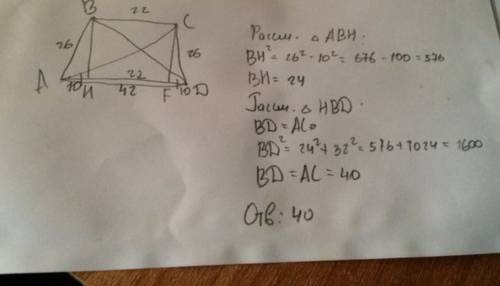 22
B
C
26
26
A
22
10
H
F
10
D
42
Рассм. △ ABH
BH² = 26² - 10² = 676 - 100 = 576
BH = 24
Рассм. △ HBD.
BD = AC
BD² = 24² + 32² = 576 + 1024 = 1600
BD = AC = 40
Отв: 40